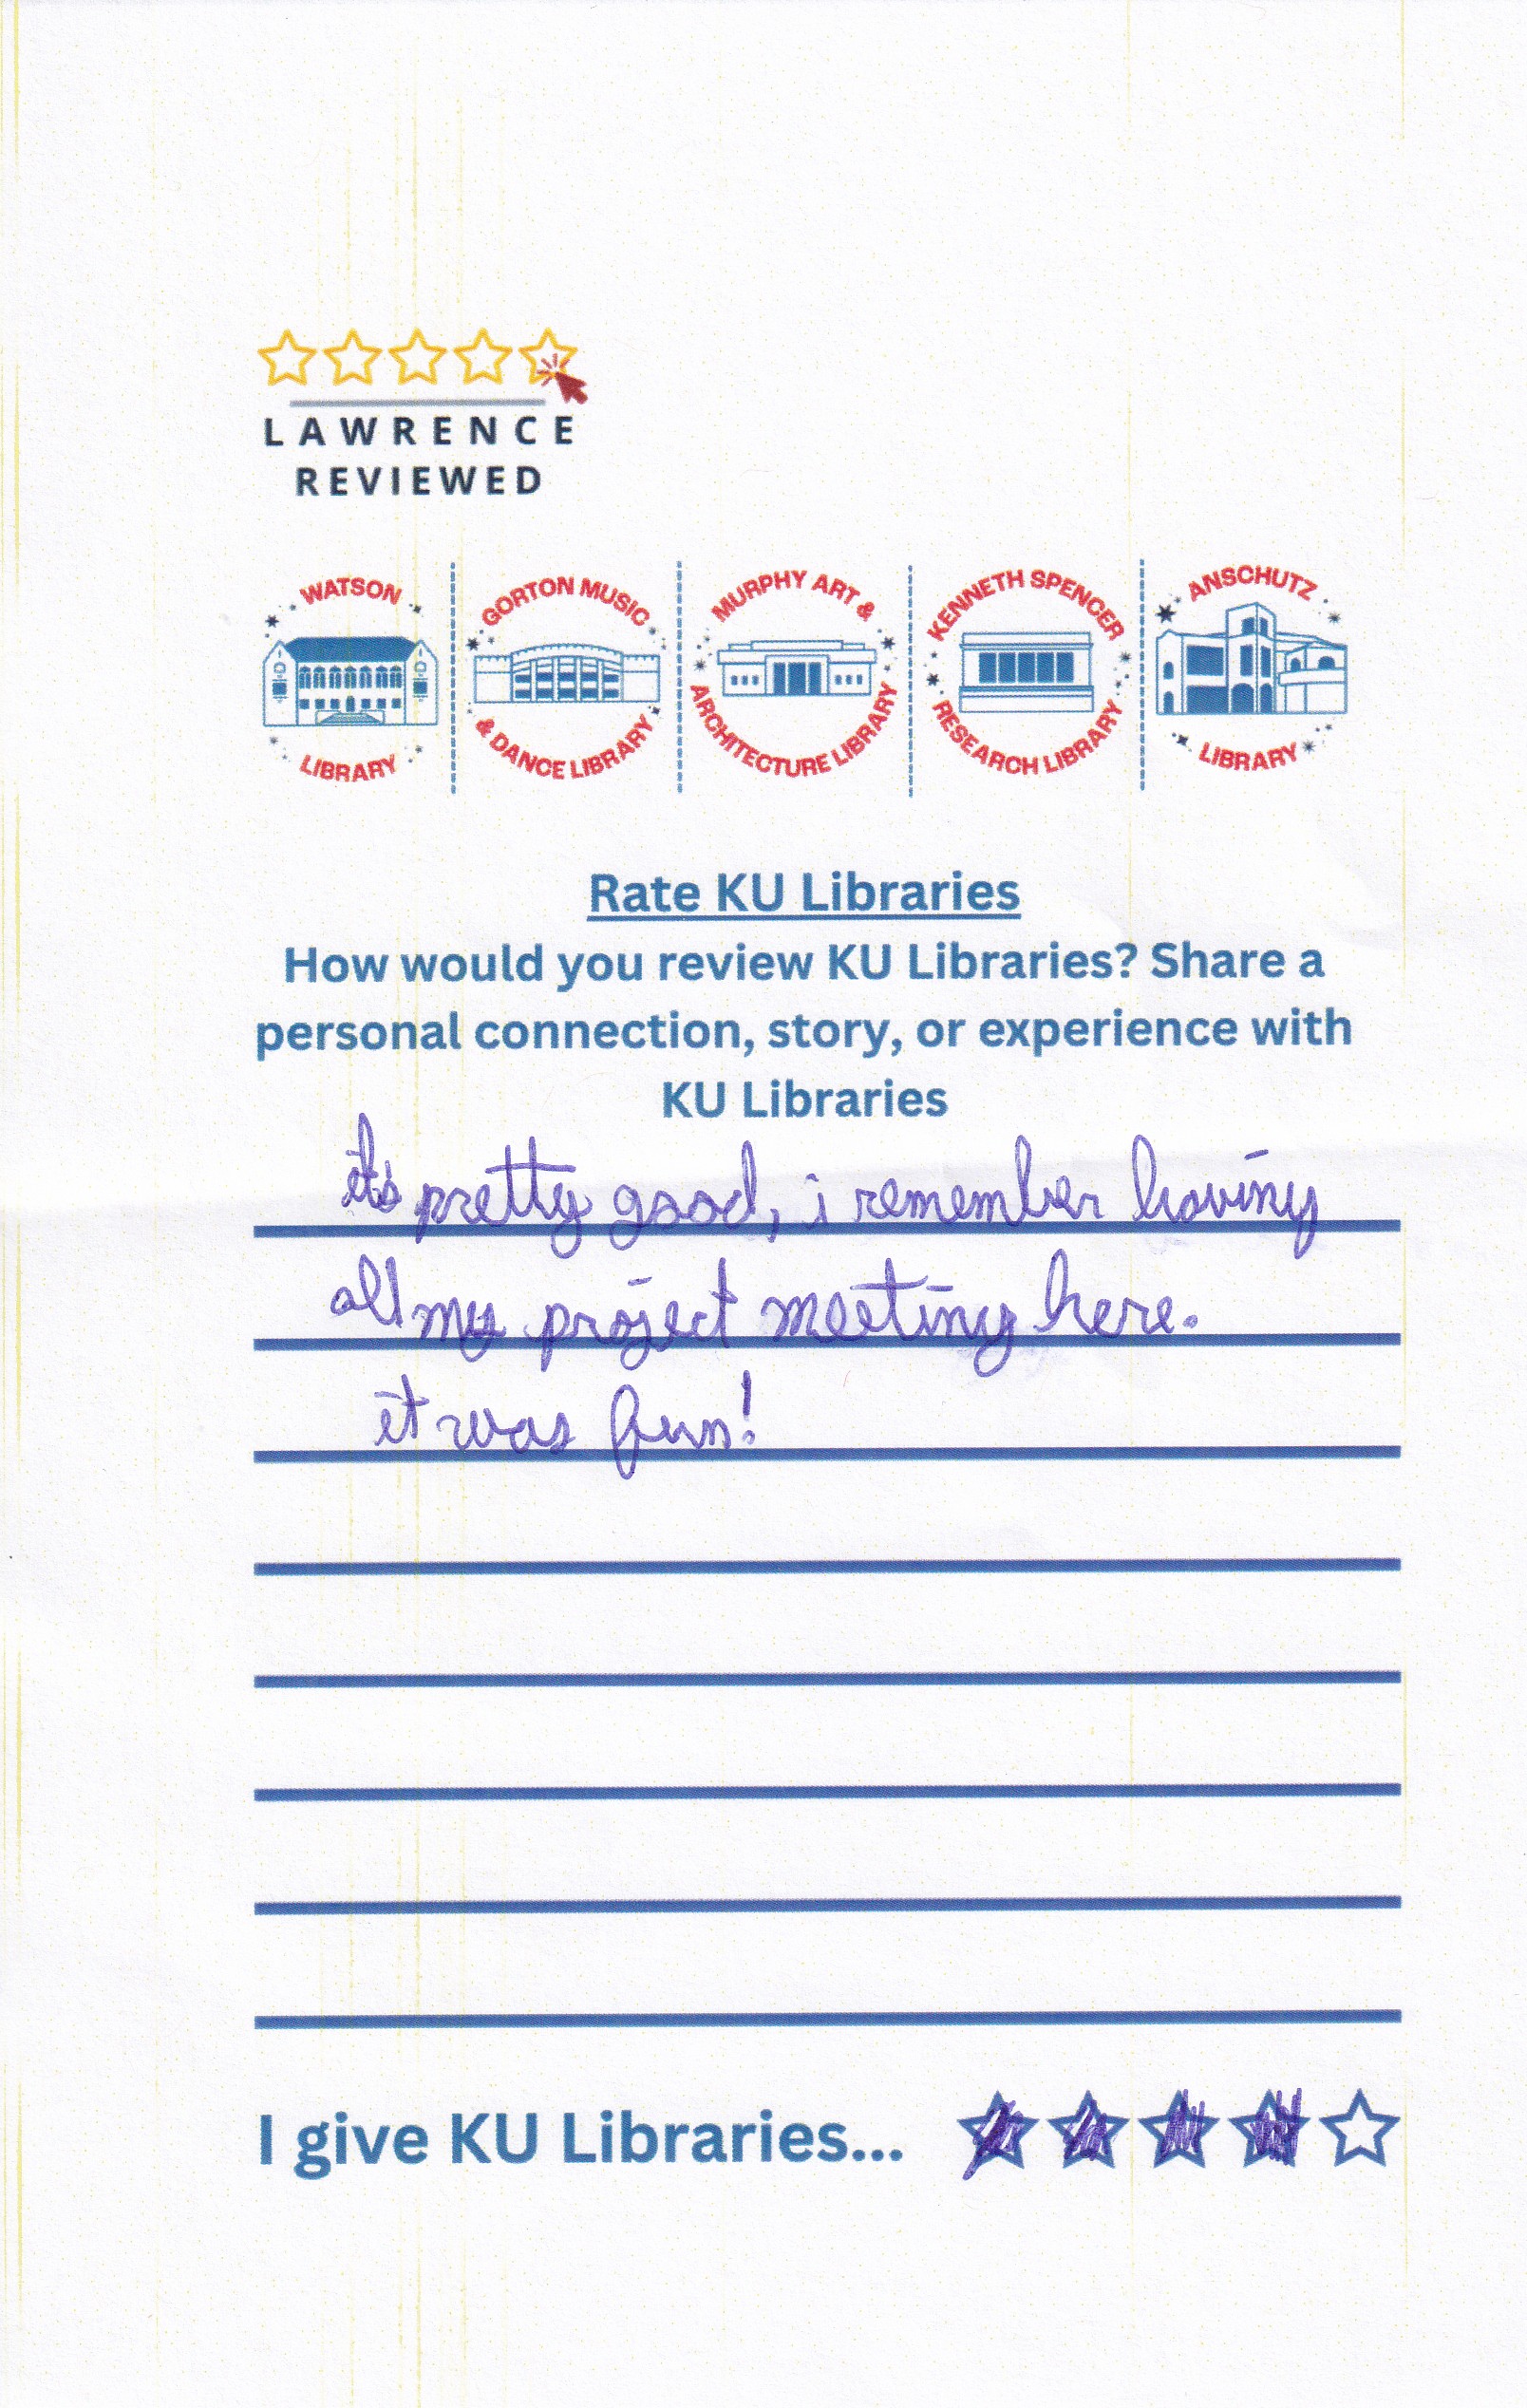 LAWRENCE
REVIEWED
WATSON LIBRARY
GORTON MUSIC & DANCE LIBRARY
MURPHY ART & ARCHITECTURE LIBRARY
KENNETH SPENCER RESEARCH LIBRARY
ANSCHUTZ LIBRARY
Rate KU Libraries
How would you review KU Libraries? Share a
personal connection, story, or experience with
KU Libraries
it's pretty good, i remember having
all my project meeting here.
it was fun!
I give KU Libraries...